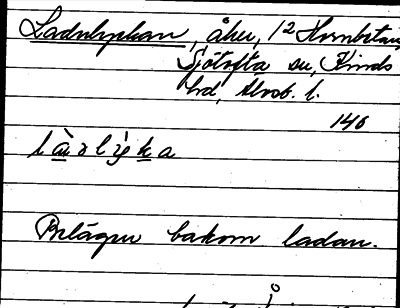 Ladulyckan, åker, 1/2 Hornbetan,
Sjötofta sn, Kinds
hd, Älvsb. l.
146
Belägen bakom ladan.